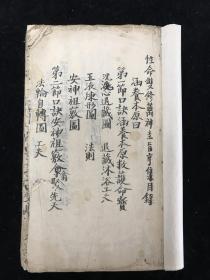 性命雙修萬神圭旨亨集目錄
涵養本原圖
第一節口訣涵養本原救護命寶
洗心退藏圖 退藏沐浴工夫
玉液煉形圖 法則
安神祖竅圖
第二節口訣安神祖竅翕聚先天
法輪自轉圖 工夫